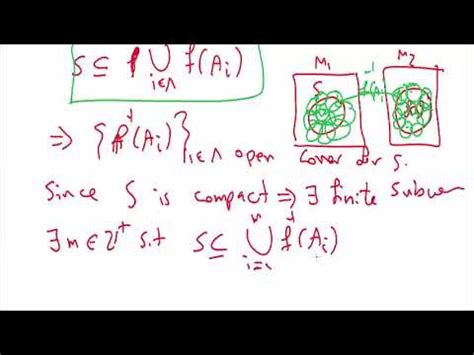 S ⊆ ⋃_{i∈Λ} f⁻¹(A_i)
M₁ M₂
S f⁻¹(A_i)
⇒ {f⁻¹(A_i)}_{i∈Λ} open cover for S.
Since S is compact ⇒ ∃ finite subcover
∃ n ∈ ℤ⁺ s.t S ⊆ ⋃_{i=1}^{n} f⁻¹(A_i)